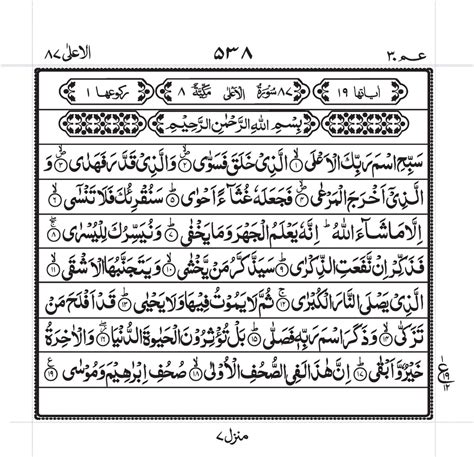 عم ٣٠ ٥٣٨ الاعلیٰ ٨٧
اٰیاتها ١٩ ٨٧ سُوْرَةُ الْاَعْلٰی مَكِّیَّةٌ ٨ ركوعها ١
بِسْمِ اللّٰهِ الرَّحْمٰنِ الرَّحِیْمِ
سَبِّحِ اسْمَ رَبِّكَ الْاَعْلَی ۙ﴿١﴾ الَّذِیْ خَلَقَ فَسَوّٰی ۪ۙ﴿٢﴾ وَالَّذِیْ قَدَّرَ فَهَدٰی ۪ۙ﴿٣﴾ وَ
الَّذِیْۤ اَخْرَجَ الْمَرْعٰی ۪ۙ﴿٤﴾ فَجَعَلَهٗ غُثَآءً اَحْوٰی ؕ﴿٥﴾ سَنُقْرِئُكَ فَلَا تَنْسٰۤی ۙ﴿٦﴾
اِلَّا مَا شَآءَ اللّٰهُ ؕ اِنَّهٗ یَعْلَمُ الْجَهْرَ وَمَا یَخْفٰی ؕ﴿٧﴾ وَنُیَسِّرُكَ لِلْیُسْرٰی ۚۖ﴿٨﴾
فَذَكِّرْ اِنْ نَّفَعَتِ الذِّكْرٰی ؕ﴿٩﴾ سَیَذَّكَّرُ مَنْ یَّخْشٰی ۙ﴿١٠﴾ وَیَتَجَنَّبُهَا الْاَشْقَی ۙ﴿١١﴾
الَّذِیْ یَصْلَی النَّارَ الْكُبْرٰی ۚ﴿١٢﴾ ثُمَّ لَا یَمُوْتُ فِیْهَا وَلَا یَحْیٰی ؕ﴿١٣﴾ قَدْ اَفْلَحَ مَنْ
تَزَكّٰی ۙ﴿١٤﴾ وَذَكَرَ اسْمَ رَبِّهٖ فَصَلّٰی ؕ﴿١٥﴾ بَلْ تُؤْثِرُوْنَ الْحَیٰوةَ الدُّنْیَا ۫ۖ﴿١٦﴾ وَالْاٰخِرَةُ
خَیْرٌ وَّاَبْقٰی ؕ﴿١٧﴾ اِنَّ هٰذَا لَفِی الصُّحُفِ الْاُوْلٰی ۙ﴿١٨﴾ صُحُفِ اِبْرٰهِیْمَ وَمُوْسٰی ﴿١٩﴾
ع ١٩ ١٢
منزل ٧